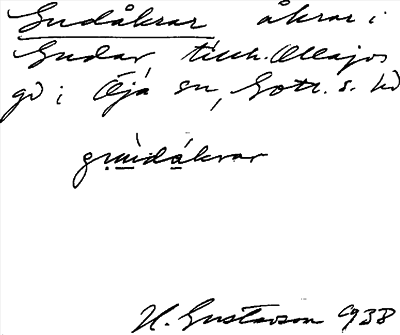 Gudåkrar åkrar i
Gudar tillh. Ollajvs
gd i Öja sn, Gotl. s. hd
gu̇dåkrar
H. Gustavson 1938